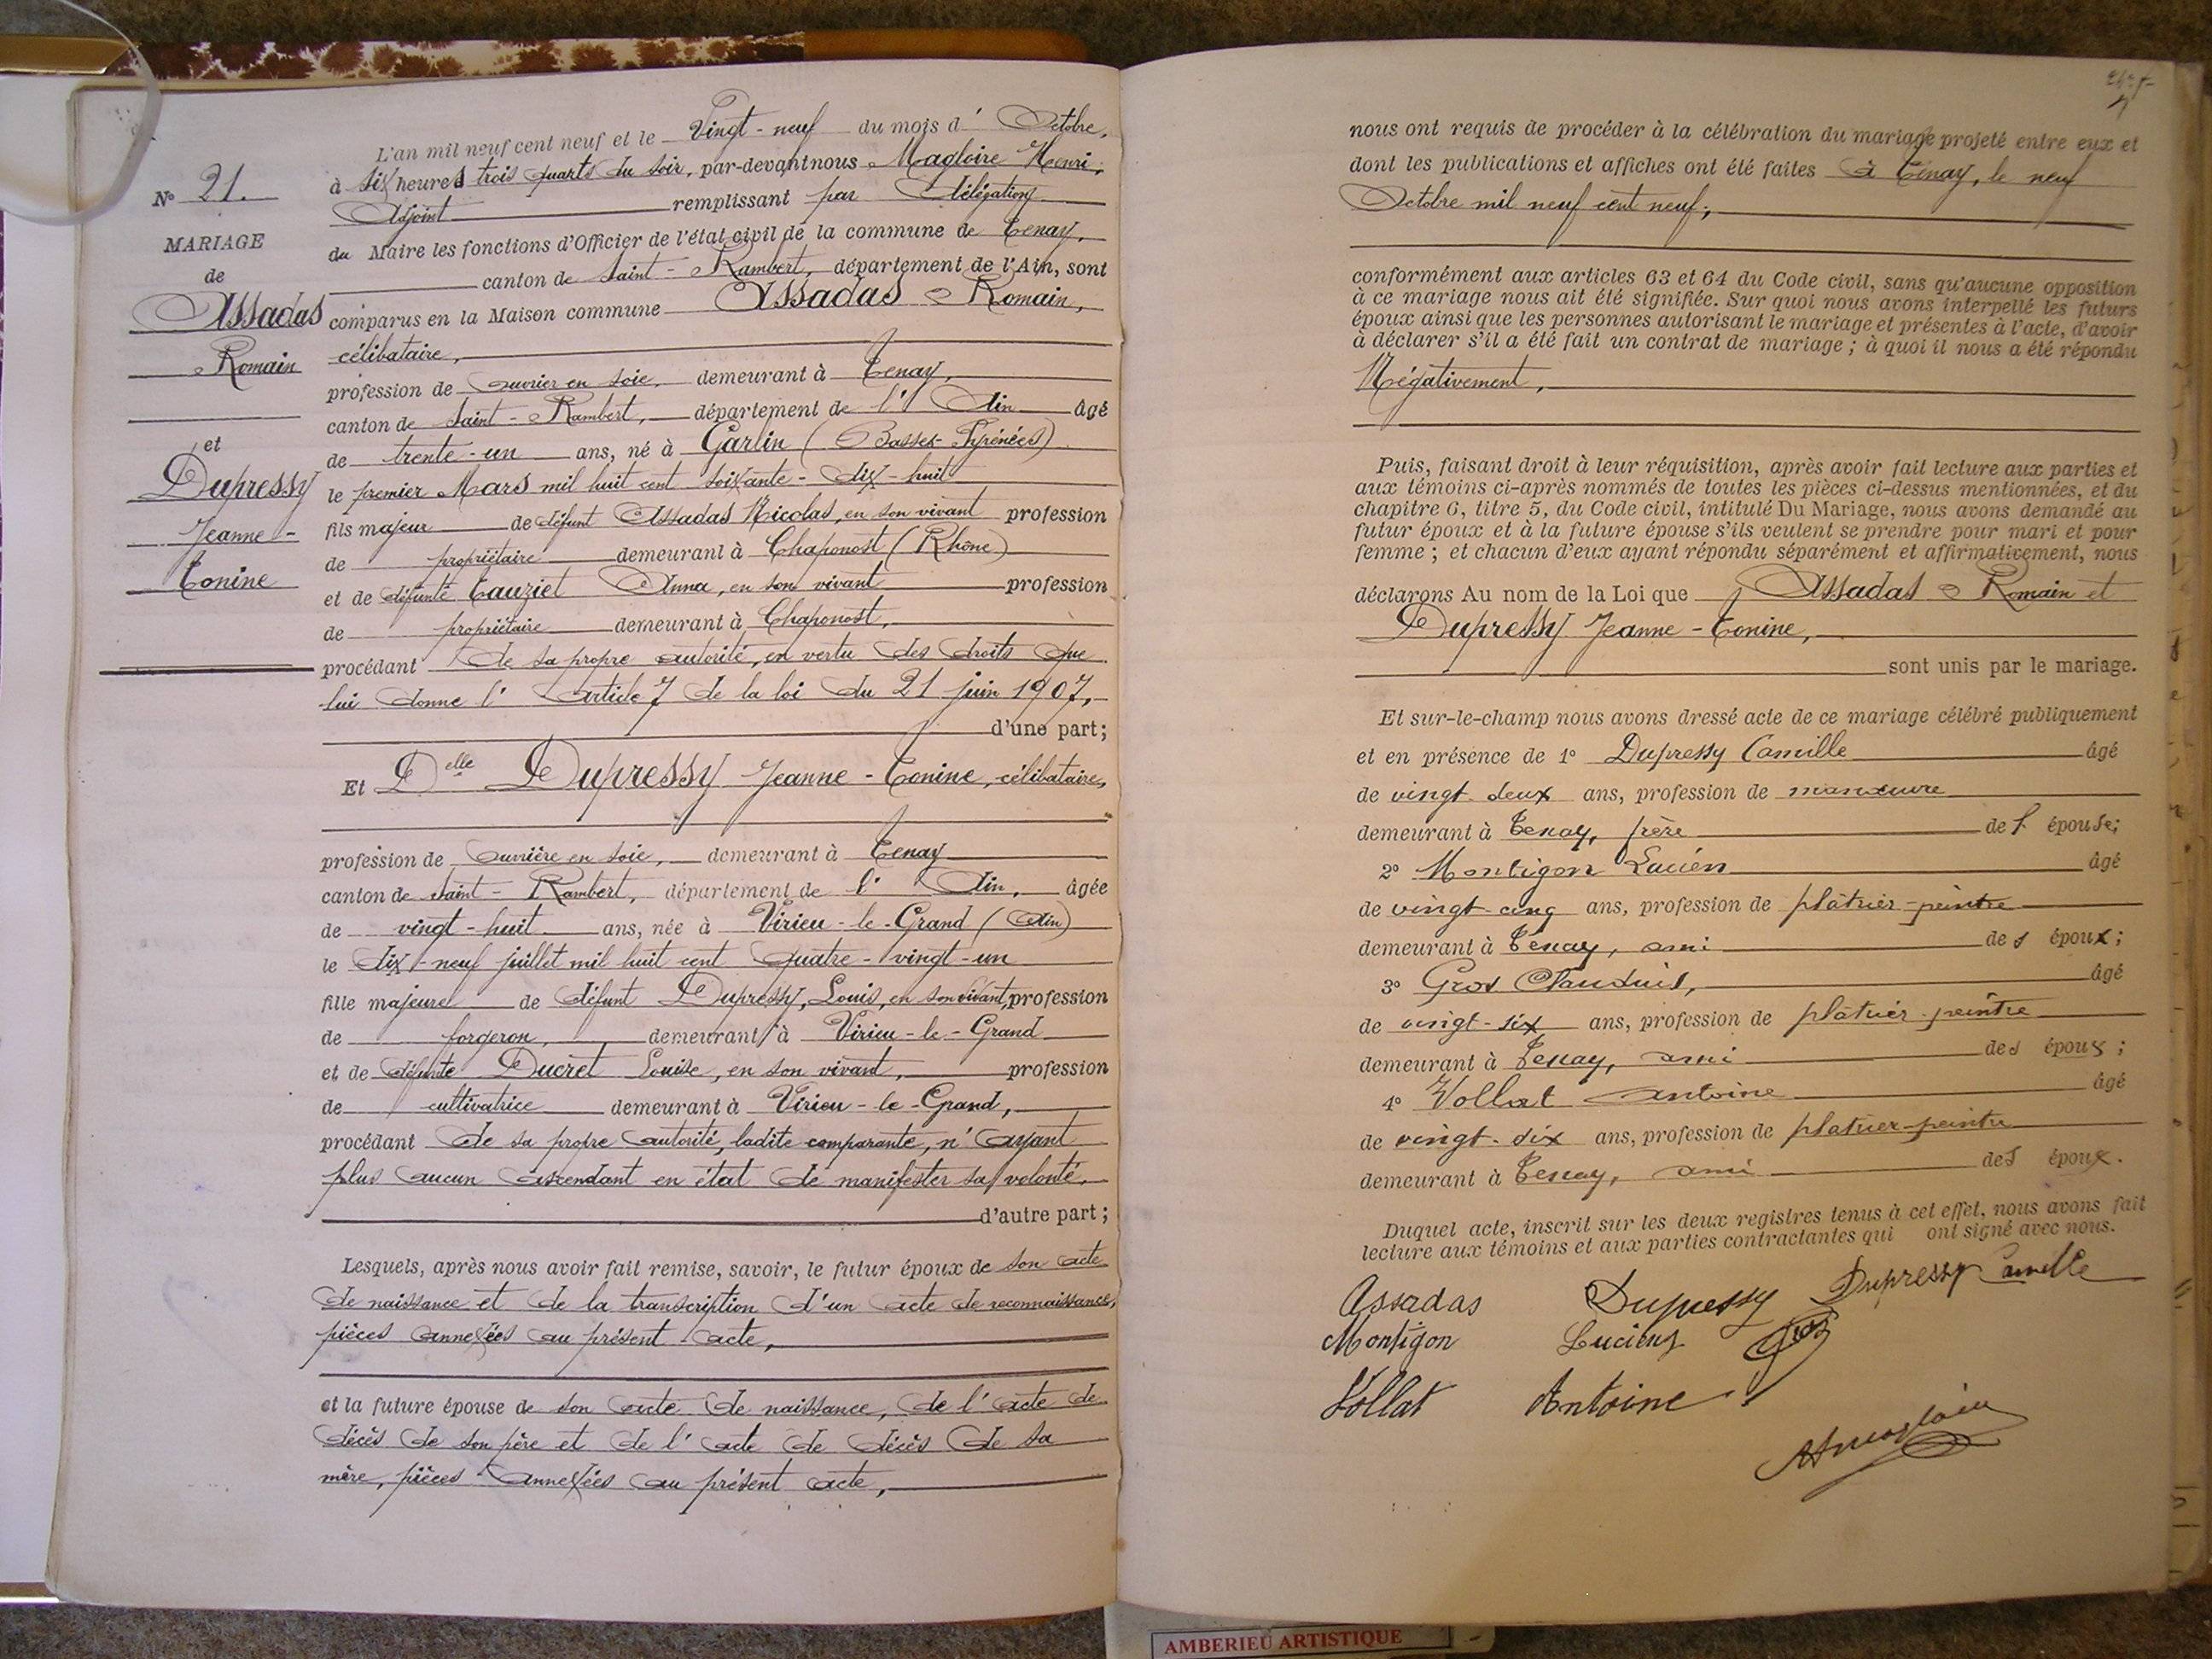 N° 21.
MARIAGE
de
Assadas
Romain
et
Dupressy
Jeanne-
Tonine
L'an mil neuf cent neuf et le Vingt-neuf du mois d' Octobre,
à six heures trois quarts du soir, par-devant nous Magloire Henri,
Adjoint remplissant par délégation
du Maire les fonctions d'Officier de l'état civil de la commune de Tenay,
canton de Saint-Rambert, département de l'Ain, sont
comparus en la Maison commune Assadas Romain,
célibataire,
profession de ouvrier en soie, demeurant à Tenay,
canton de Saint-Rambert, département de l'Ain âgé
de trente-un ans, né à Garlin (Basses-Pyrénées)
le premier Mars mil huit cent soixante-dix-huit
fils majeur de défunt Assadas Nicolas, en son vivant profession
de propriétaire demeurant à Chaponost (Rhône)
et de défunte Tauziet Anna, en son vivant profession
de propriétaire demeurant à Chaponost,
procédant de sa propre autorité, en vertu des droits que
lui donne l'article 7 de la loi du 21 juin 1907,
d'une part;
Et Delle Dupressy Jeanne-Tonine, célibataire,
profession de ouvrière en soie, demeurant à Tenay
canton de Saint-Rambert, département de l'Ain, âgée
de vingt-huit ans, née à Virieu-le-Grand (Ain)
le dix-neuf juillet mil huit cent quatre-vingt-un
fille majeure de défunt Dupressy, Louis, en son vivant, profession
de forgeron, demeurant à Virieu-le-Grand
et de défunte Ducret Louise, en son vivant, profession
de cultivatrice demeurant à Virieu-le-Grand,
procédant de sa propre autorité, ladite comparante, n'ayant
plus aucun ascendant en état de manifester sa volonté.
d'autre part;
Lesquels, après nous avoir fait remise, savoir, le futur époux de son acte
de naissance et de la transcription d'un acte de reconnaissance,
pièces annexées au présent acte,
et la future épouse de son acte de naissance, de l'acte de
décès de son père et de l'acte de décès de sa
mère, pièces annexées au présent acte,
nous ont requis de procéder à la célébration du mariage projeté entre eux et
dont les publications et affiches ont été faites à Tenay, le neuf
Octobre mil neuf cent neuf,
conformément aux articles 63 et 64 du Code civil, sans qu'aucune opposition
à ce mariage nous ait été signifiée. Sur quoi nous avons interpellé les futurs
époux ainsi que les personnes autorisant le mariage et présentes à l'acte, d'avoir
à déclarer s'il a été fait un contrat de mariage ; à quoi il nous a été répondu
Négativement,
Puis, faisant droit à leur réquisition, après avoir fait lecture aux parties et
aux témoins ci-après nommés de toutes les pièces ci-dessus mentionnées, et du
chapitre 6, titre 5, du Code civil, intitulé Du Mariage, nous avons demandé au
futur époux et à la future épouse s'ils veulent se prendre pour mari et pour
femme ; et chacun d'eux ayant répondu séparément et affirmativement, nous
déclarons Au nom de la Loi que Assadas Romain et
Dupressy Jeanne-Tonine,
sont unis par le mariage.
Et sur-le-champ nous avons dressé acte de ce mariage célébré publiquement
et en présence de 1° Dupressy Camille âgé
de vingt-deux ans, profession de manœuvre
demeurant à Tenay, frère de l' épouse;
2° Montigon Lucien âgé
de vingt-cinq ans, profession de plâtrier-peintre
demeurant à Tenay, ami des époux;
3° Gros Claudius, âgé
de vingt-six ans, profession de plâtrier-peintre
demeurant à Tenay, ami des époux;
4° Vollat Antoine âgé
de vingt-six ans, profession de plâtrier-peintre
demeurant à Tenay, ami des époux.
Duquel acte, inscrit sur les deux registres tenus à cet effet, nous avons fait
lecture aux témoins et aux parties contractantes qui ont signé avec nous.
Assadas Dupressy Dupressy Camille
Montigon Lucien Gros
Vollat Antoine
AMBERIEU ARTISTIQUE